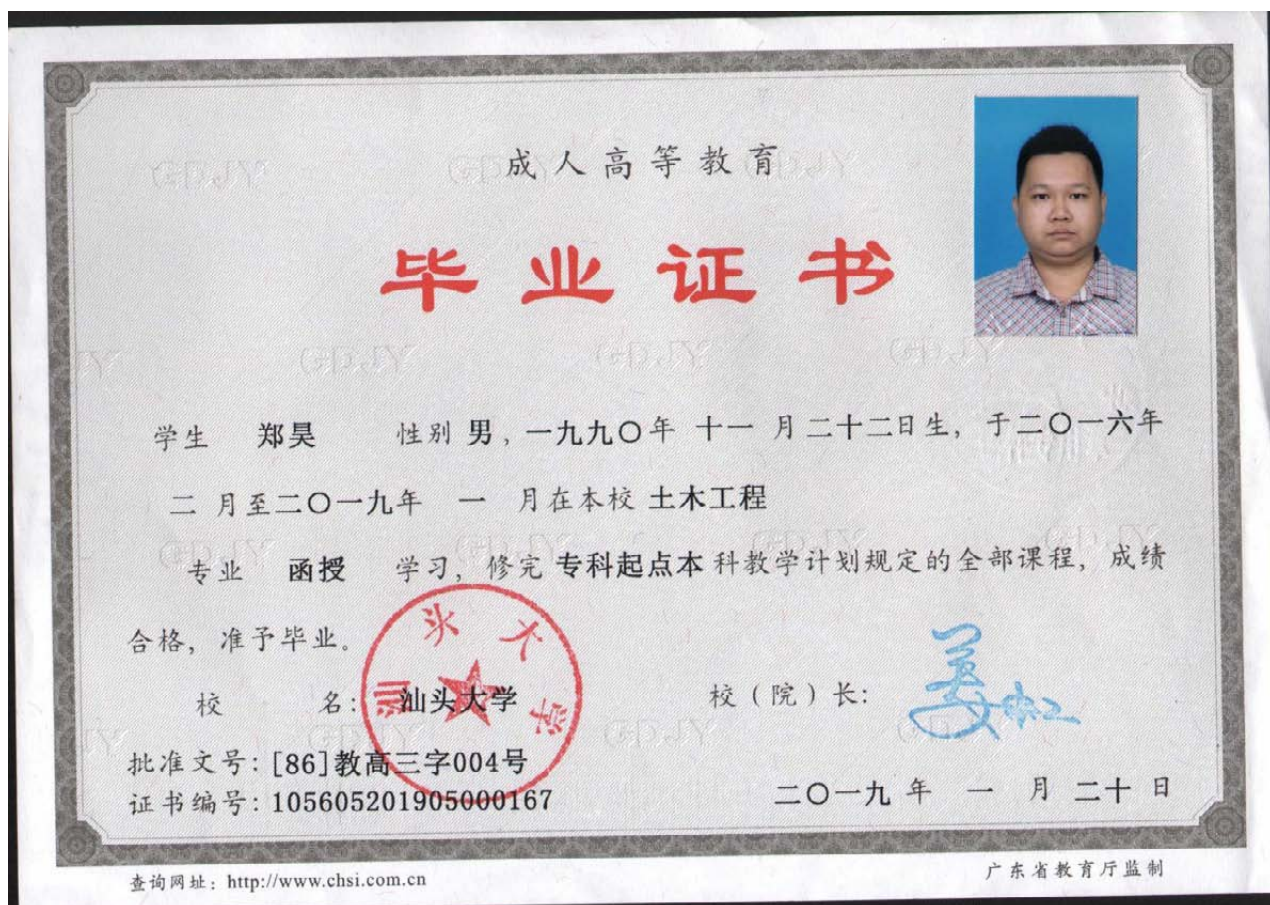 成人高等教育
毕业证书
学生 郑昊 性别 男，一九九〇年 十一 月二十二日生，于二〇一六年
二 月至二〇一九年 一 月在本校 土木工程
专业 函授 学习，修完 专科起点本 科教学计划规定的全部课程，成绩
合格，准予毕业。
汕头大学
校 名：汕头大学 校（院）长：
批准文号：[86]教高三字004号
证书编号：105605201905000167 二〇一九 年 一 月 二十 日
查询网址：http://www.chsi.com.cn 广东省教育厅监制